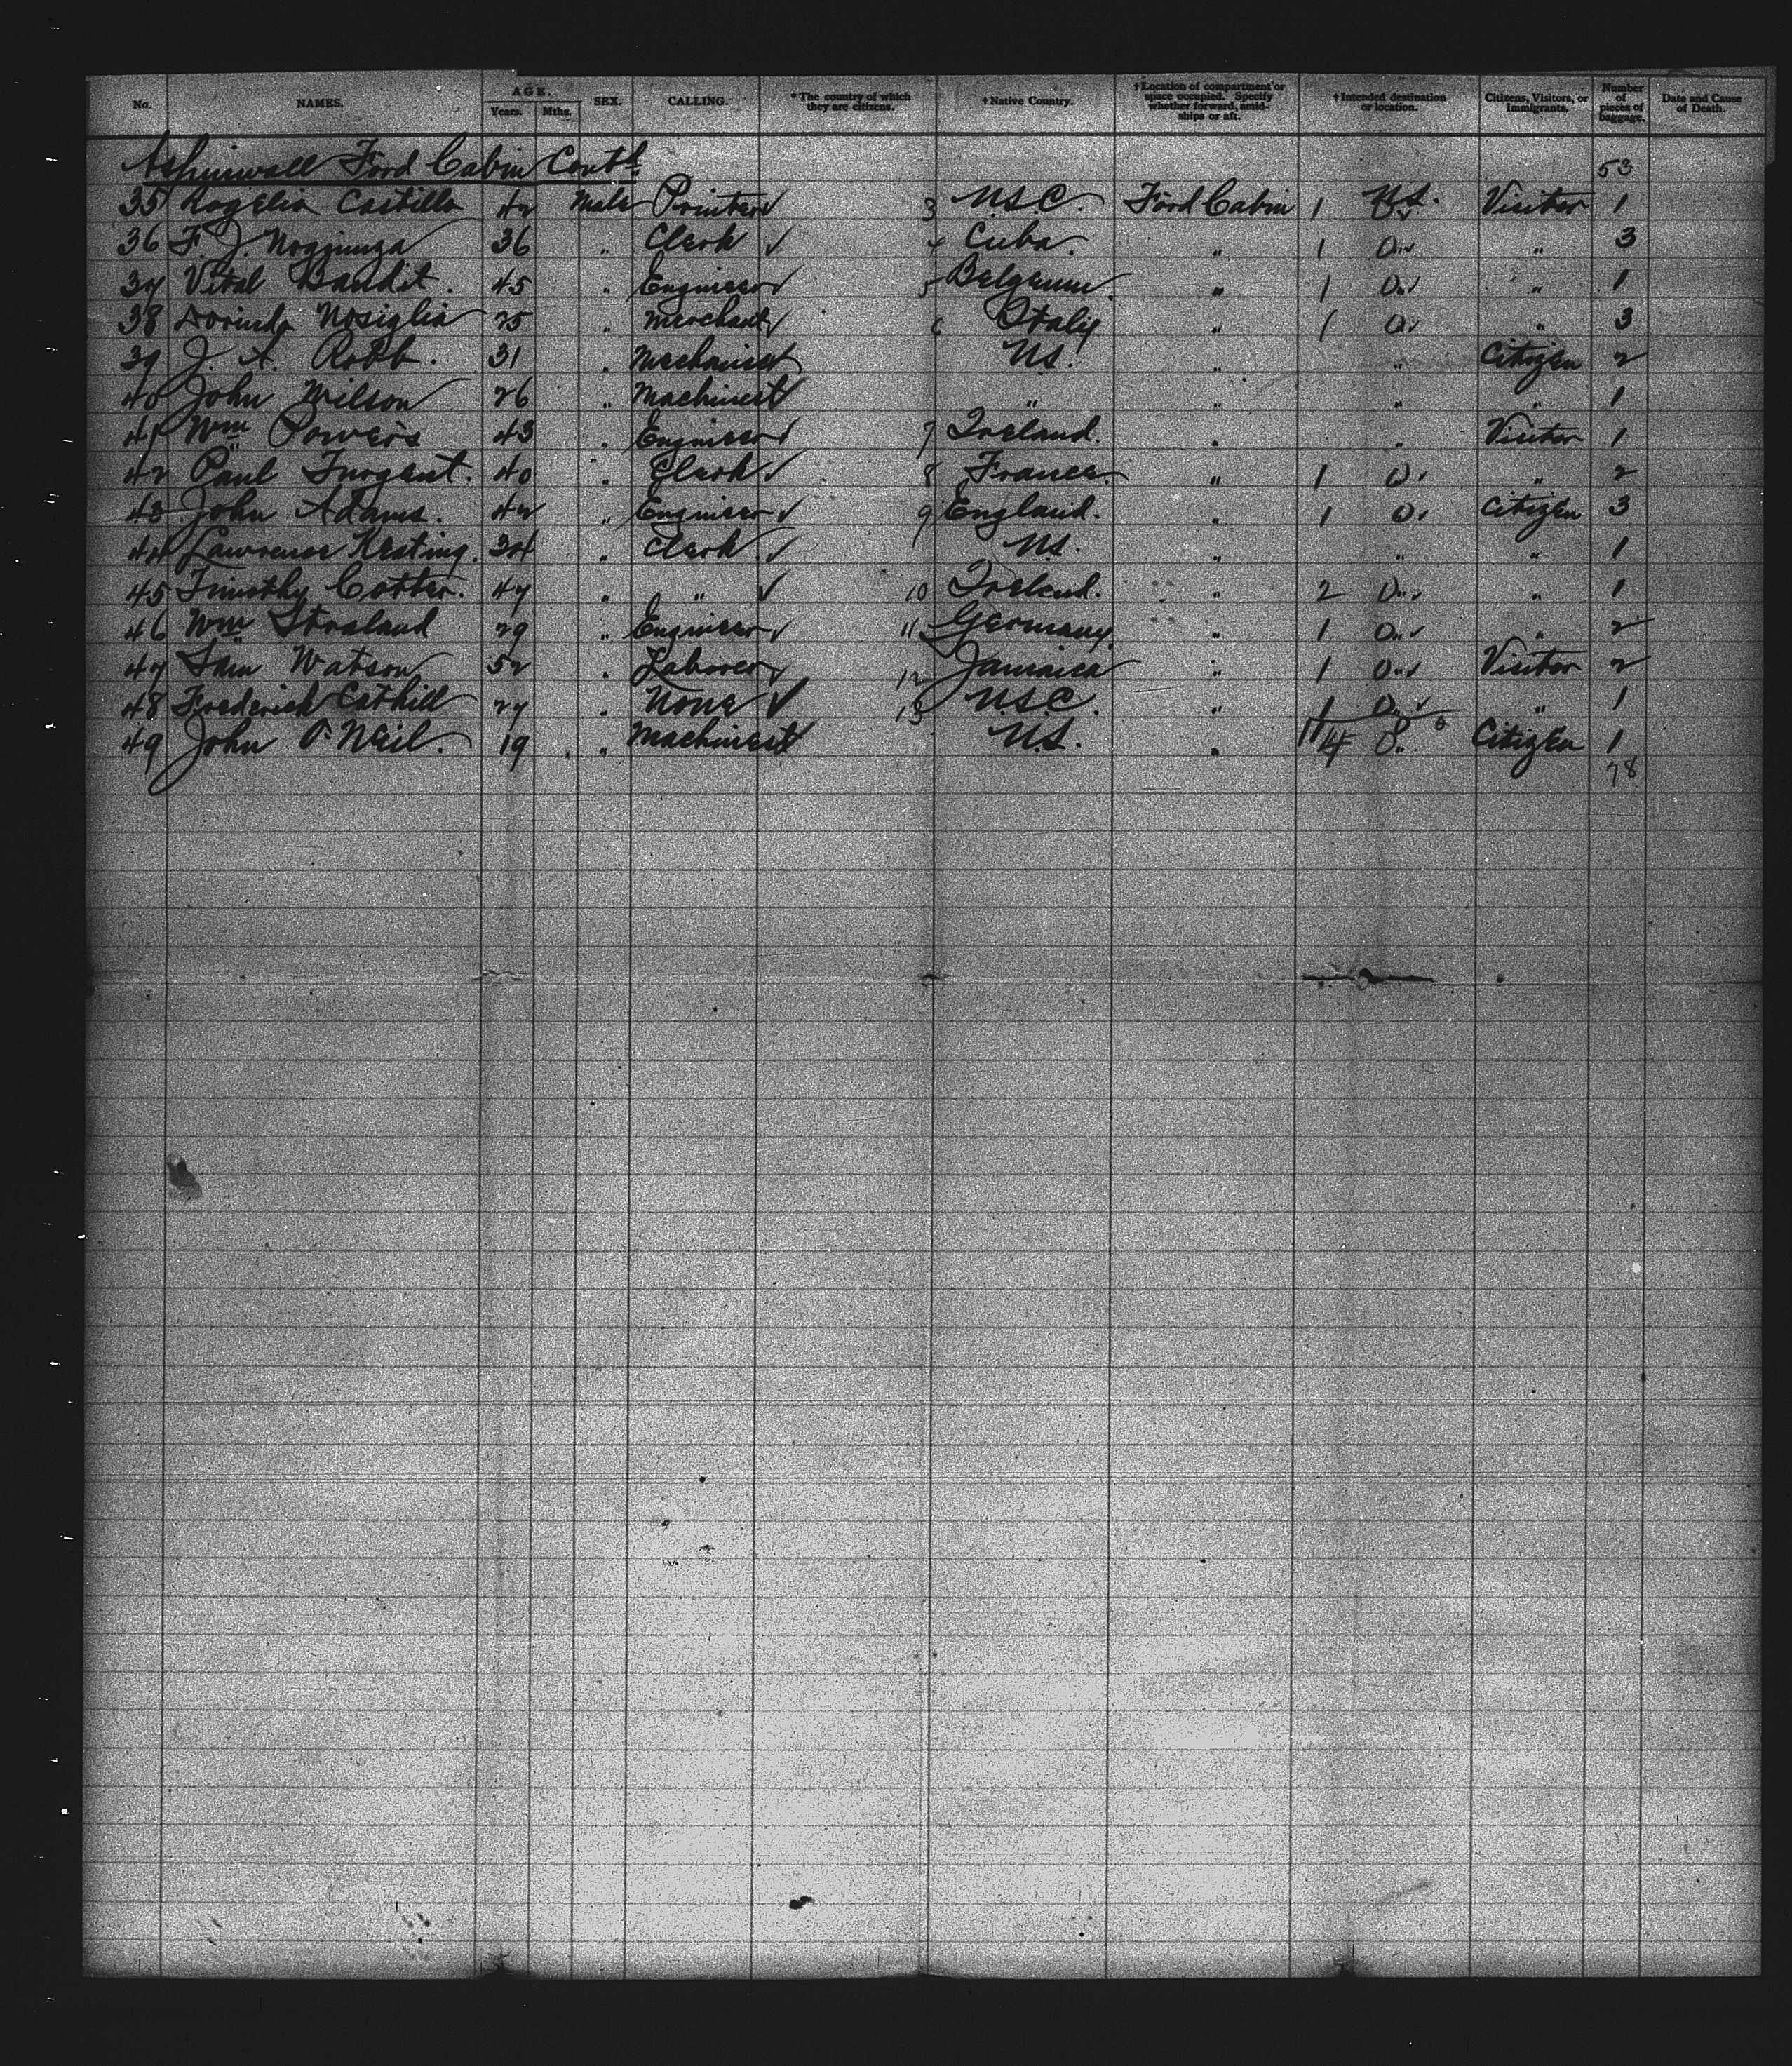 No. NAMES. AGE. Years. Mths. SEX. CALLING. *The country of which they are citizens. †Native Country. †Location of compartment or space occupied. Specify whether forward, amidships or aft. †Intended destination or location. Citizens, Visitors, or Immigrants. Number of pieces of baggage. Date and Cause of Death.
Ashinwall Ford Cabin Contd 53
35 Rogelia Castillo 42 Male Printer ✓ 3 U.S.C. Ford Cabin 1 U.S. Visitor 1
36 F. J. 36 " Clerk ✓ 4 Cuba " 1 " 3
37 Vital Bandit. 45 " Engineer ✓ 5 Belgium " 1 " 1
38 Dorinda Nosiglia 25 " Merchant ✓ 6 Italy " 1 " 3
39 J. A. Robb. 31 " Mechanist U.S. " " Citizen 2
40 John Wilson 26 " Machinest " " " " 1
41 Wm Powers 43 " Engineer ✓ 7 Ireland. " " Visitor 1
42 Paul Turgent. 40 " Clerk ✓ 8 France. " 1 " 2
43 John Adams. 42 " Engineer ✓ 9 England. " 1 Citizen 3
44 Lawrence Kesting. 34 " Clerk ✓ U.S. " " " 1
45 Timothy Cotter. 47 " " ✓ 10 Ireland. " 2 " 1
46 Wm Straland 29 " Engineer ✓ 11 Germany " 1 " 2
47 Sam Watson 52 " Laborer ✓ 12 Jamaica " 1 Visitor 2
48 Frederick Cathill 27 " None ✓ 13 U.S.C. " 1 " 1
49 John O'Neil. 19 " Machinest U.S. " Citizen 1
78